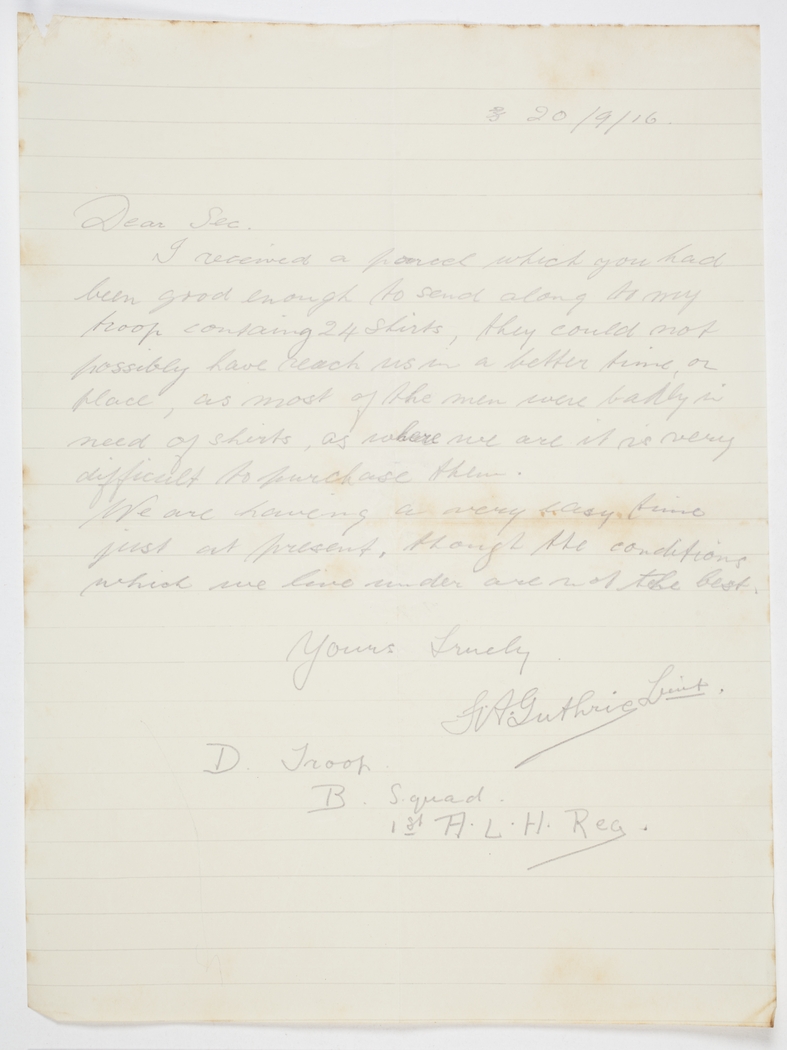 20/9/16.
Dear Sec.
I received a parcel which you had
been good enough to send along to my
troop containg 24 shirts, they could not
possibly have reach us in a better time, or
place, as most of the men were badly in
need of shirts, as where we are it is very
difficult to purchase them.
We are having a very easy time
just at present, though the conditions
which we live under are not the best.
Yours Truely
Guthrie Lieut.
D. Troop.
B. Squad.
1st A.L.H. Reg.